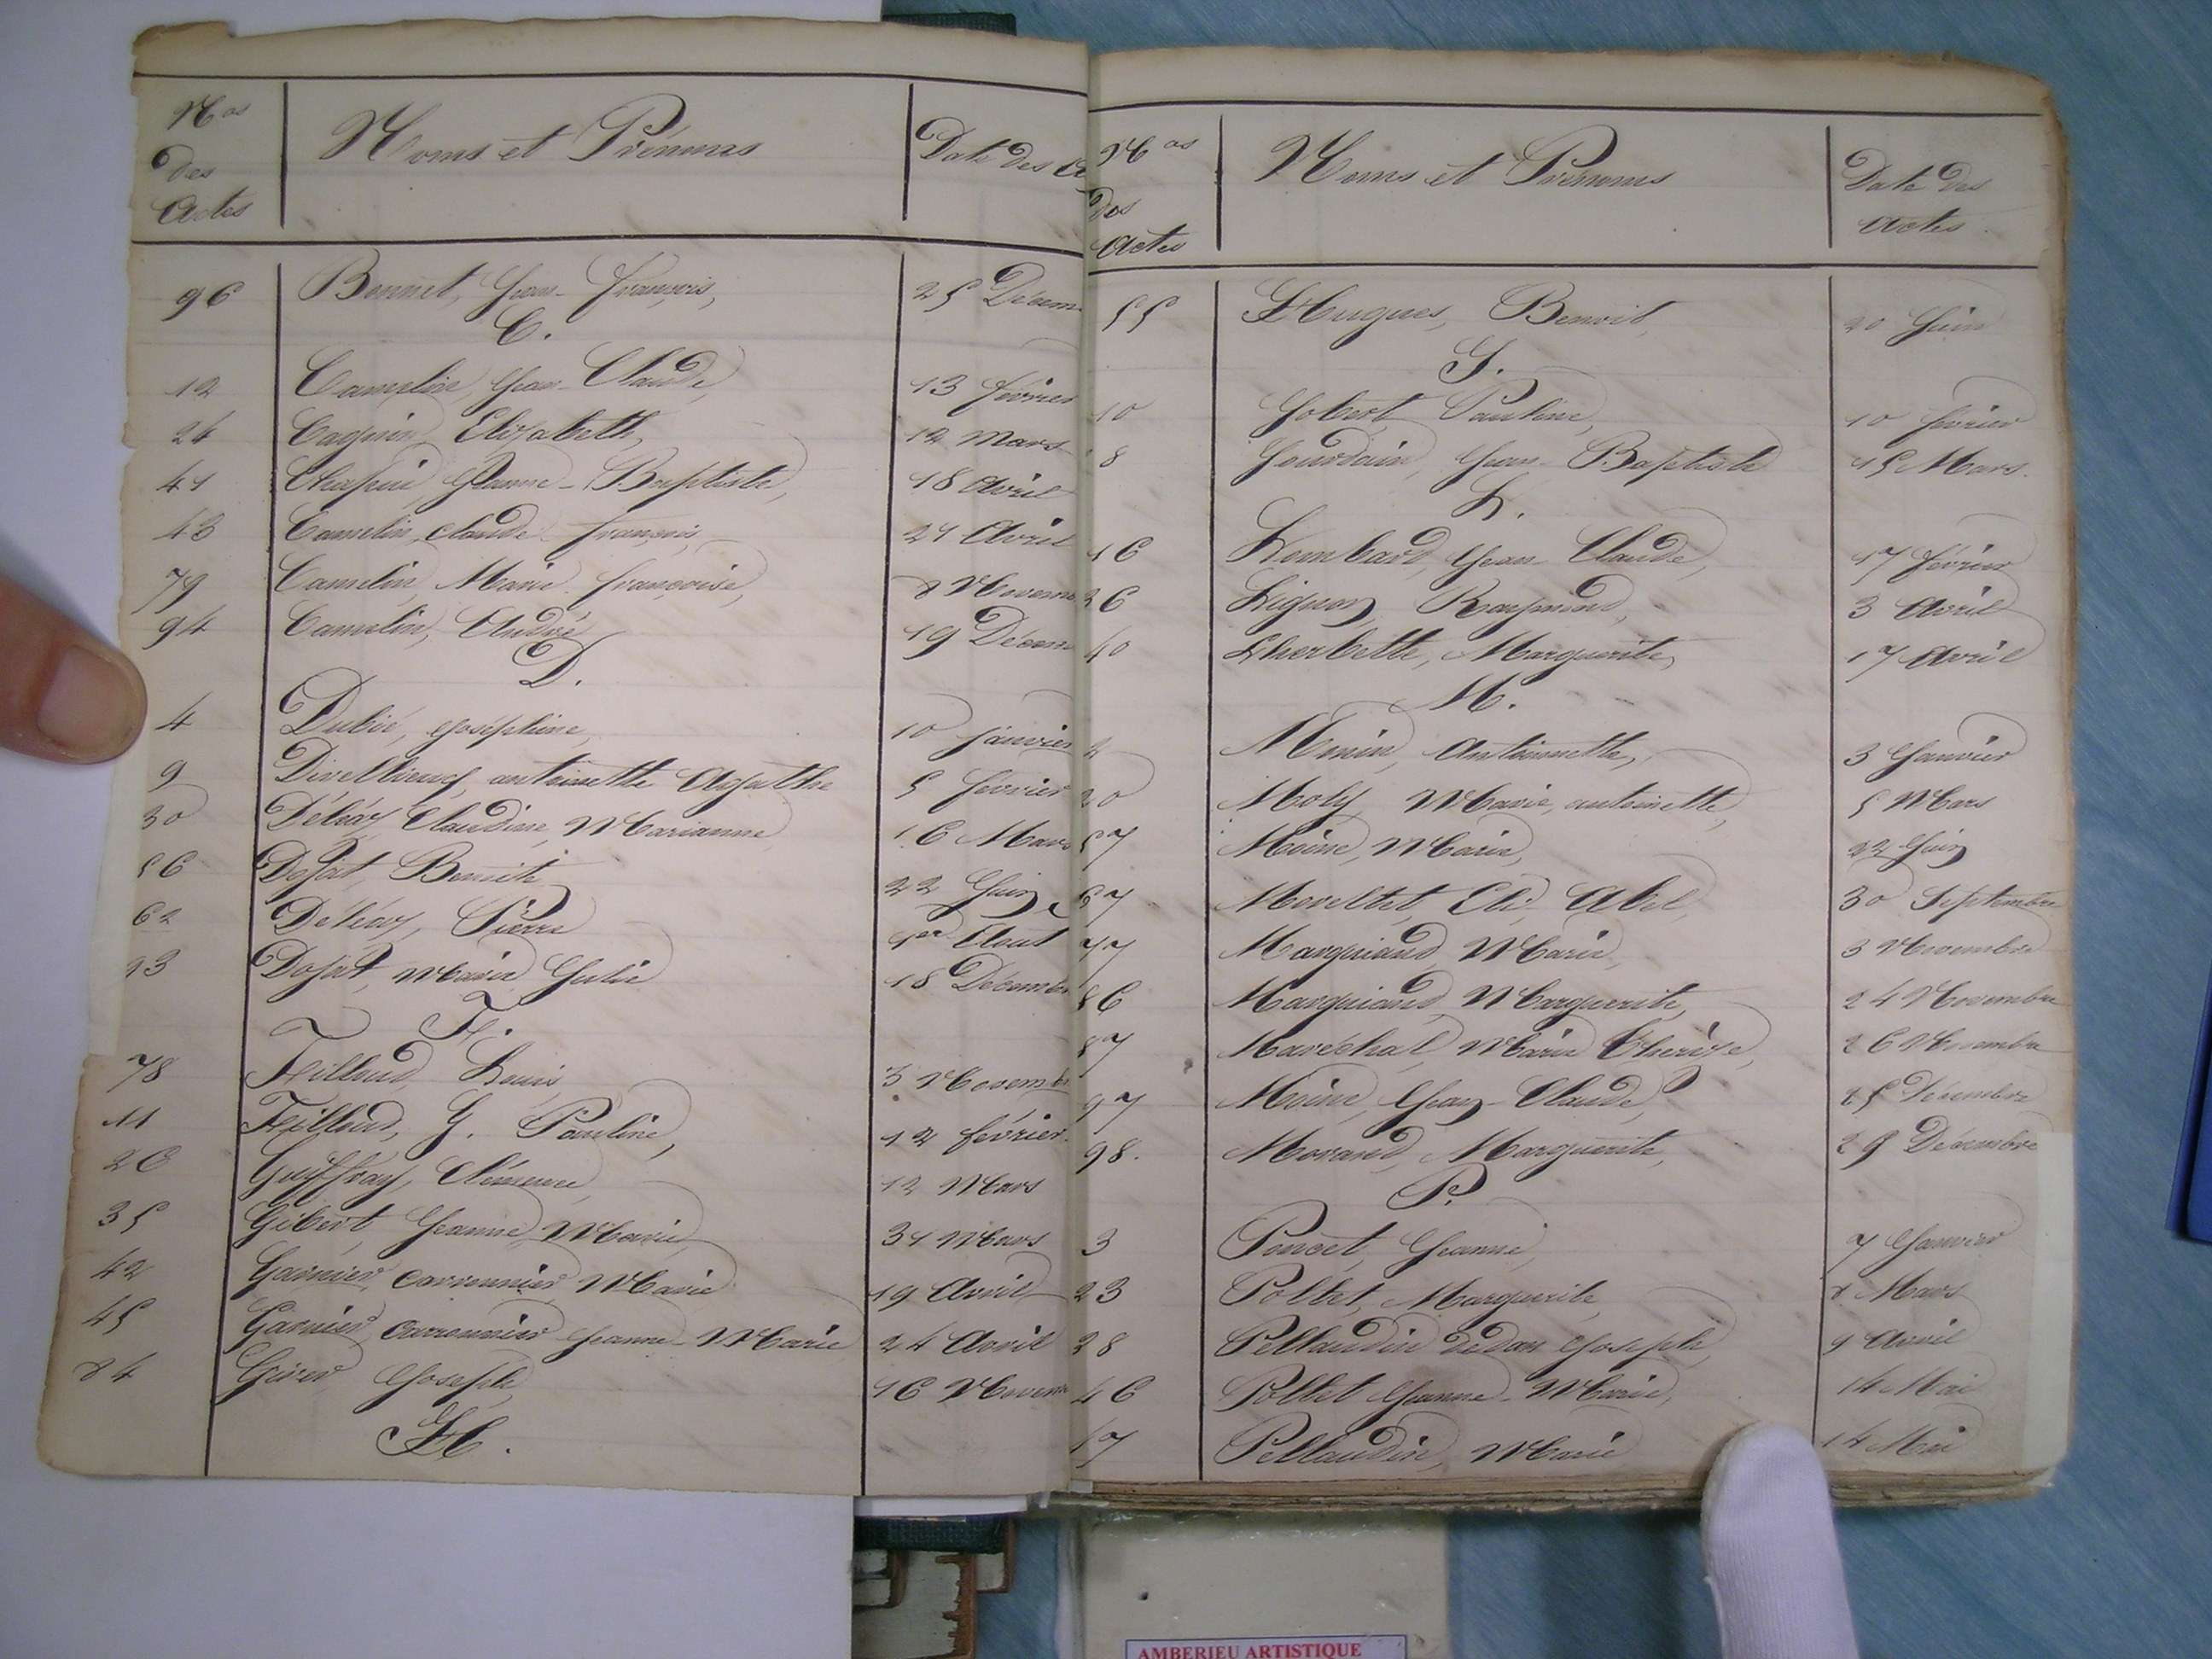 Nos
des
Actes
Noms et Prénoms
Date des Ac
96 Bonnet, Jean-François, 25 Décem
C.
12 Camelin, Jean-Claude, 13 février
24 Élizabeth, 12 Mars
41 Jeanne-Baptiste, 18 Avril
43 Camelin, Claude françois, 21 Avril
79 Camelin, Marie françoise, 8 Novem
94 Camelin, André 19 Décem
D.
4 Joséphine, 10 Janvier
9 antoinette Agathe 5 février
30 Claudine, Marianne 16 Mars
56 Dojat, Benoit 22 Juin
62 Pierre 1er Aout
93 Dojat, Marie Julie 18 Décembr
F.
78 Filloud, Louis 3 Novembr
11 Filloud, J. Pauline, 12 février
26 Guiffray, Clémence, 12 Mars
35 Gibert, Jeanne, Marie 31 Mars
42 Garnier, Marie 19 Avril
45 Garnier, Jeanne-Marie 24 Avril
84 Joseph, 16 Novem
H.
Nos
des
Actes
Noms et Prénoms
Date des
Actes
55 Hugues, Benoit, 20 Juin
J.
10 Jobert, Pauline, 10 février
8 Jourdain, Jean-Baptiste 15 Mars.
L.
16 Lombard, Jean Claude, 17 février
36 Raymond, 3 Avril
40 Lherbette, Marguerite, 17 Avril
M.
2 Monin, Antoinette, 3 Janvier
20 Marie, antoinette, 5 Mars
57 Moine, Marie, 22 Juin
67 Abel 30 Septembre
77 Marie, 3 Novembre
86 Marguerite, 24 Novembre
87 Maréchal, Marie Thérèse, 26 Novembre
97 Moine, Jean-Claude, 25 Décembre
98. Morand, Marguerite, 29 Décembre
P.
3 Poncet, Jeanne, 7 Janvier
23 Pollet, Marguerite, 8 Mars
38 Pellaudin Joseph, 9 Avril
46 Pollet Jeanne-Marie, 14 Mai
47 Pellaudin, Marie 14 Mai
AMBERIEU ARTISTIQUE